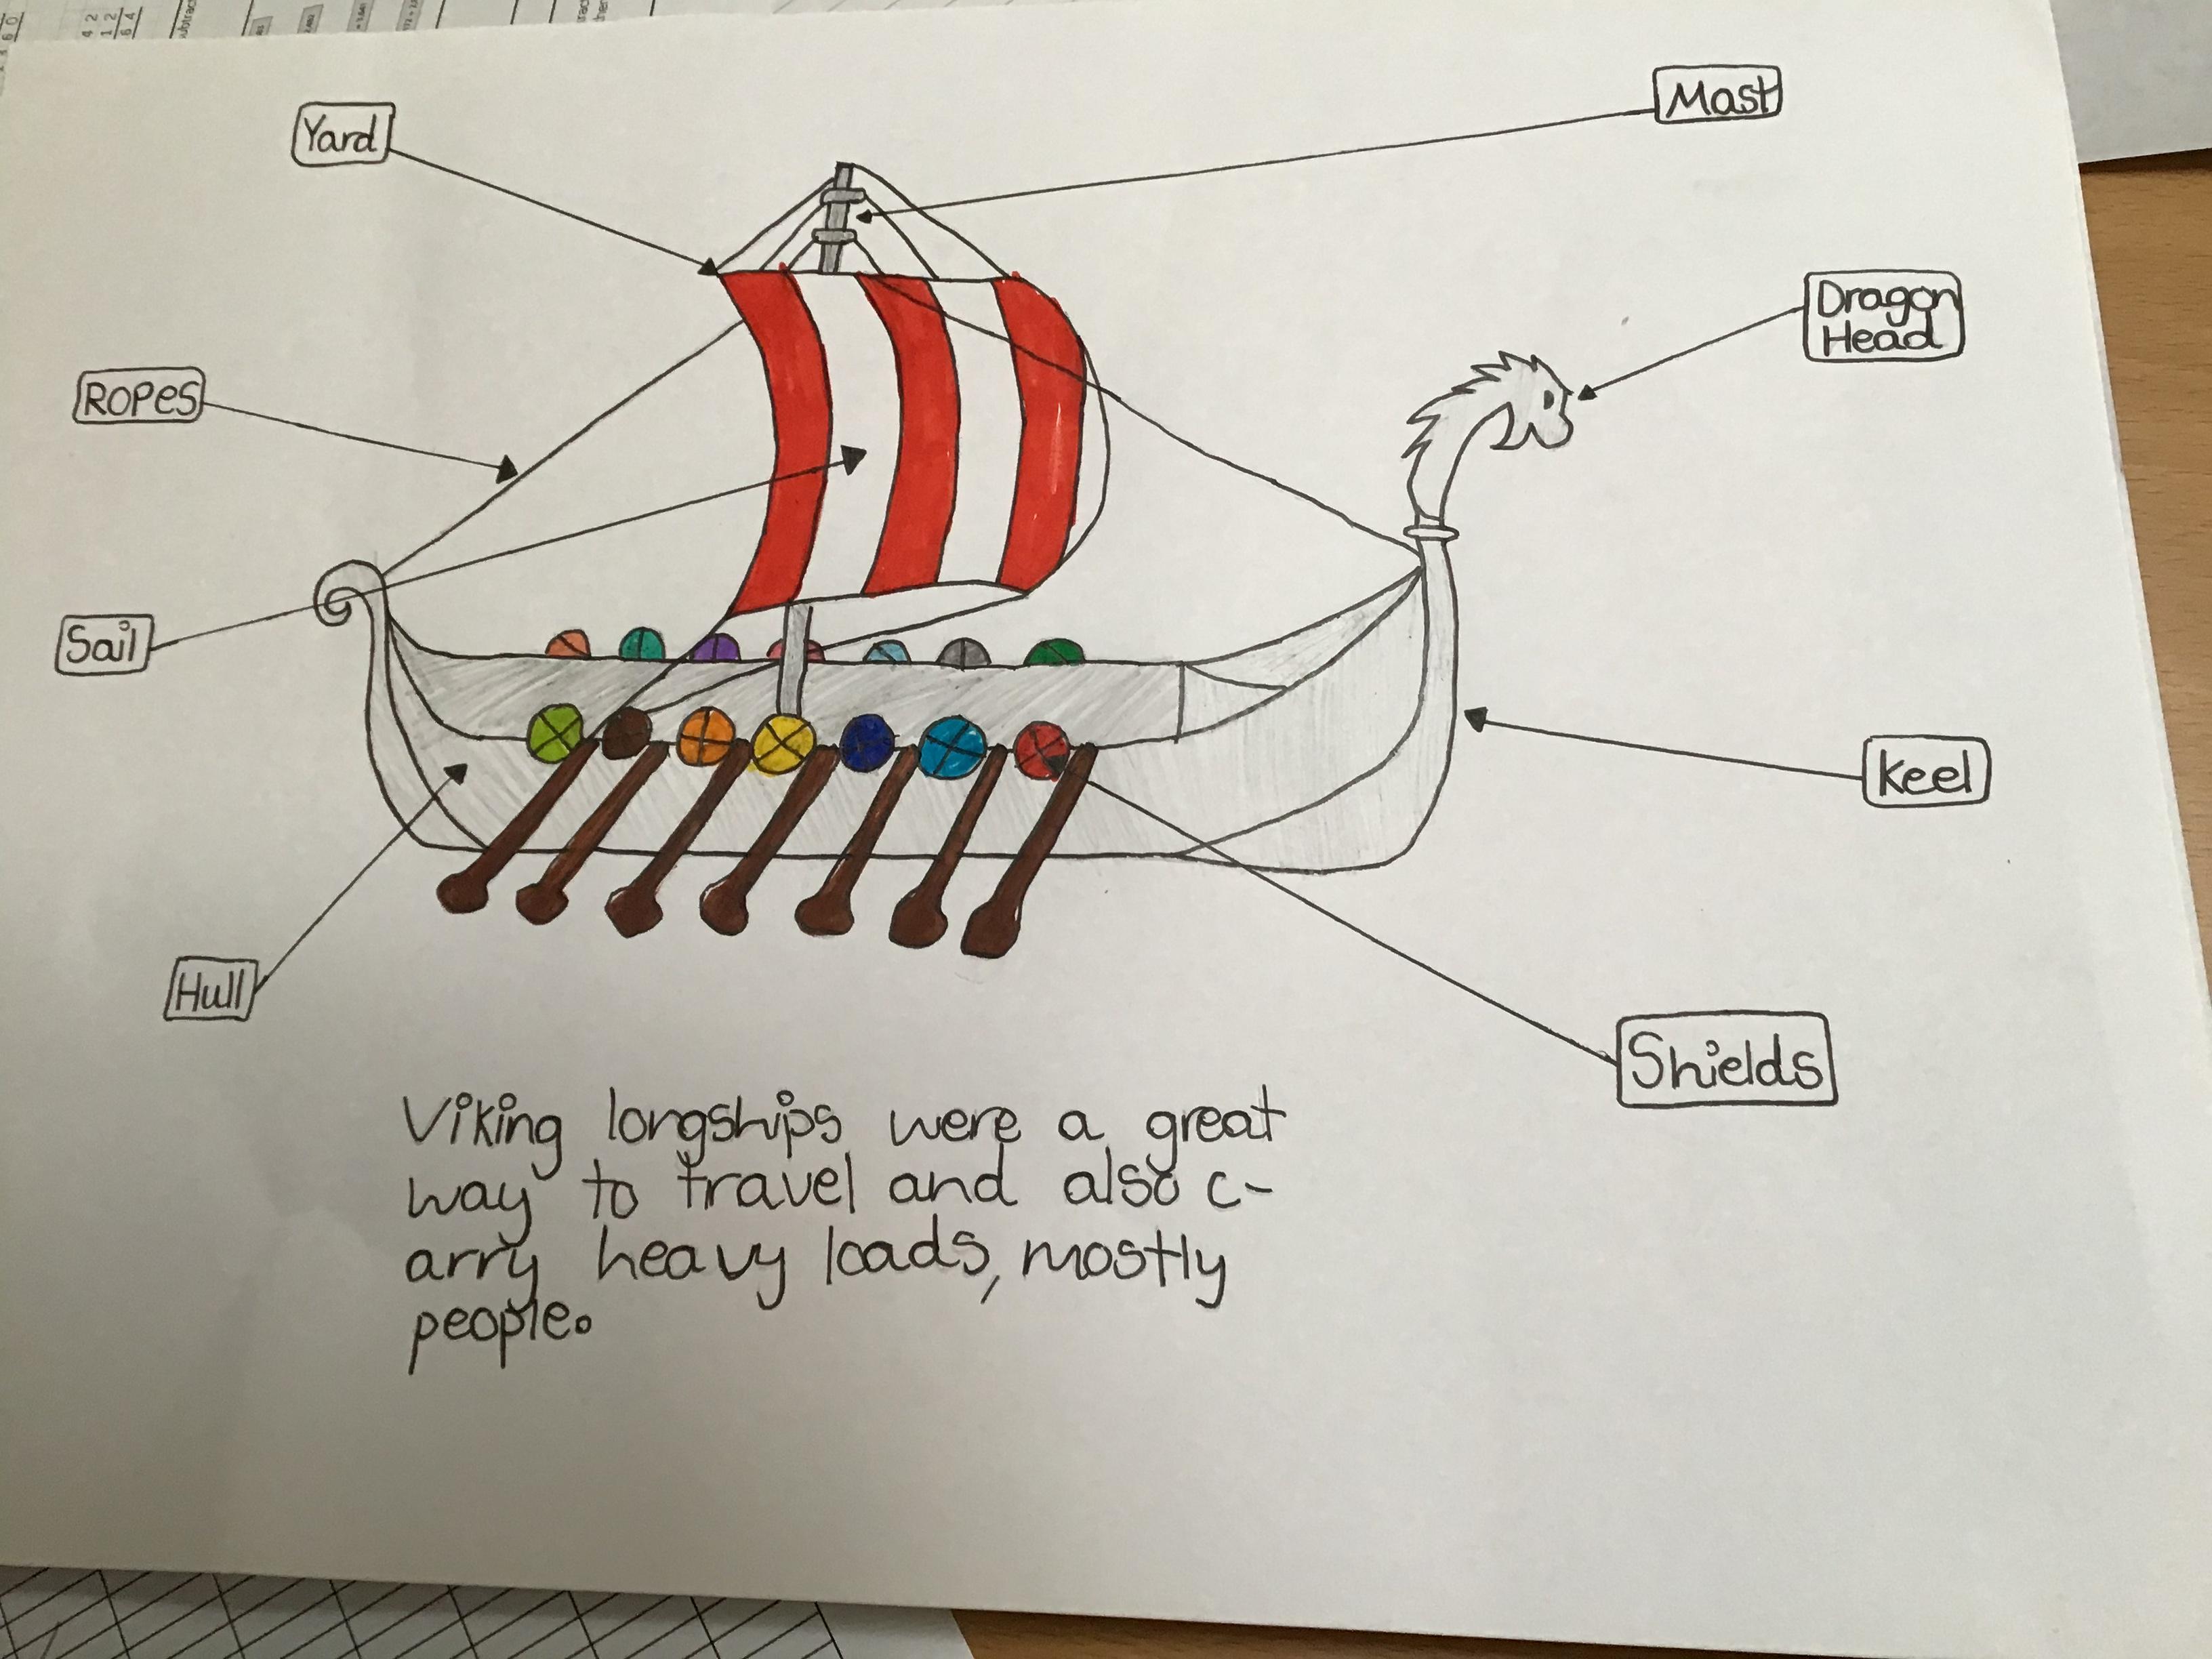 Yard
Mast
Dragon
Head
Ropes
Sail
Keel
Hull
Shields
Viking longships were a great
way to travel and also c-
arry heavy loads, mostly
people.